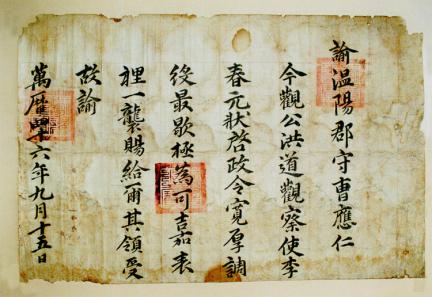 諭溫陽郡守曹應仁
今觀公洪道觀察使李
春元狀啓政令寬厚調
役最歇極爲可嘉表
裡一襲賜給爾其領受
故諭
萬曆四十六年九月十五日